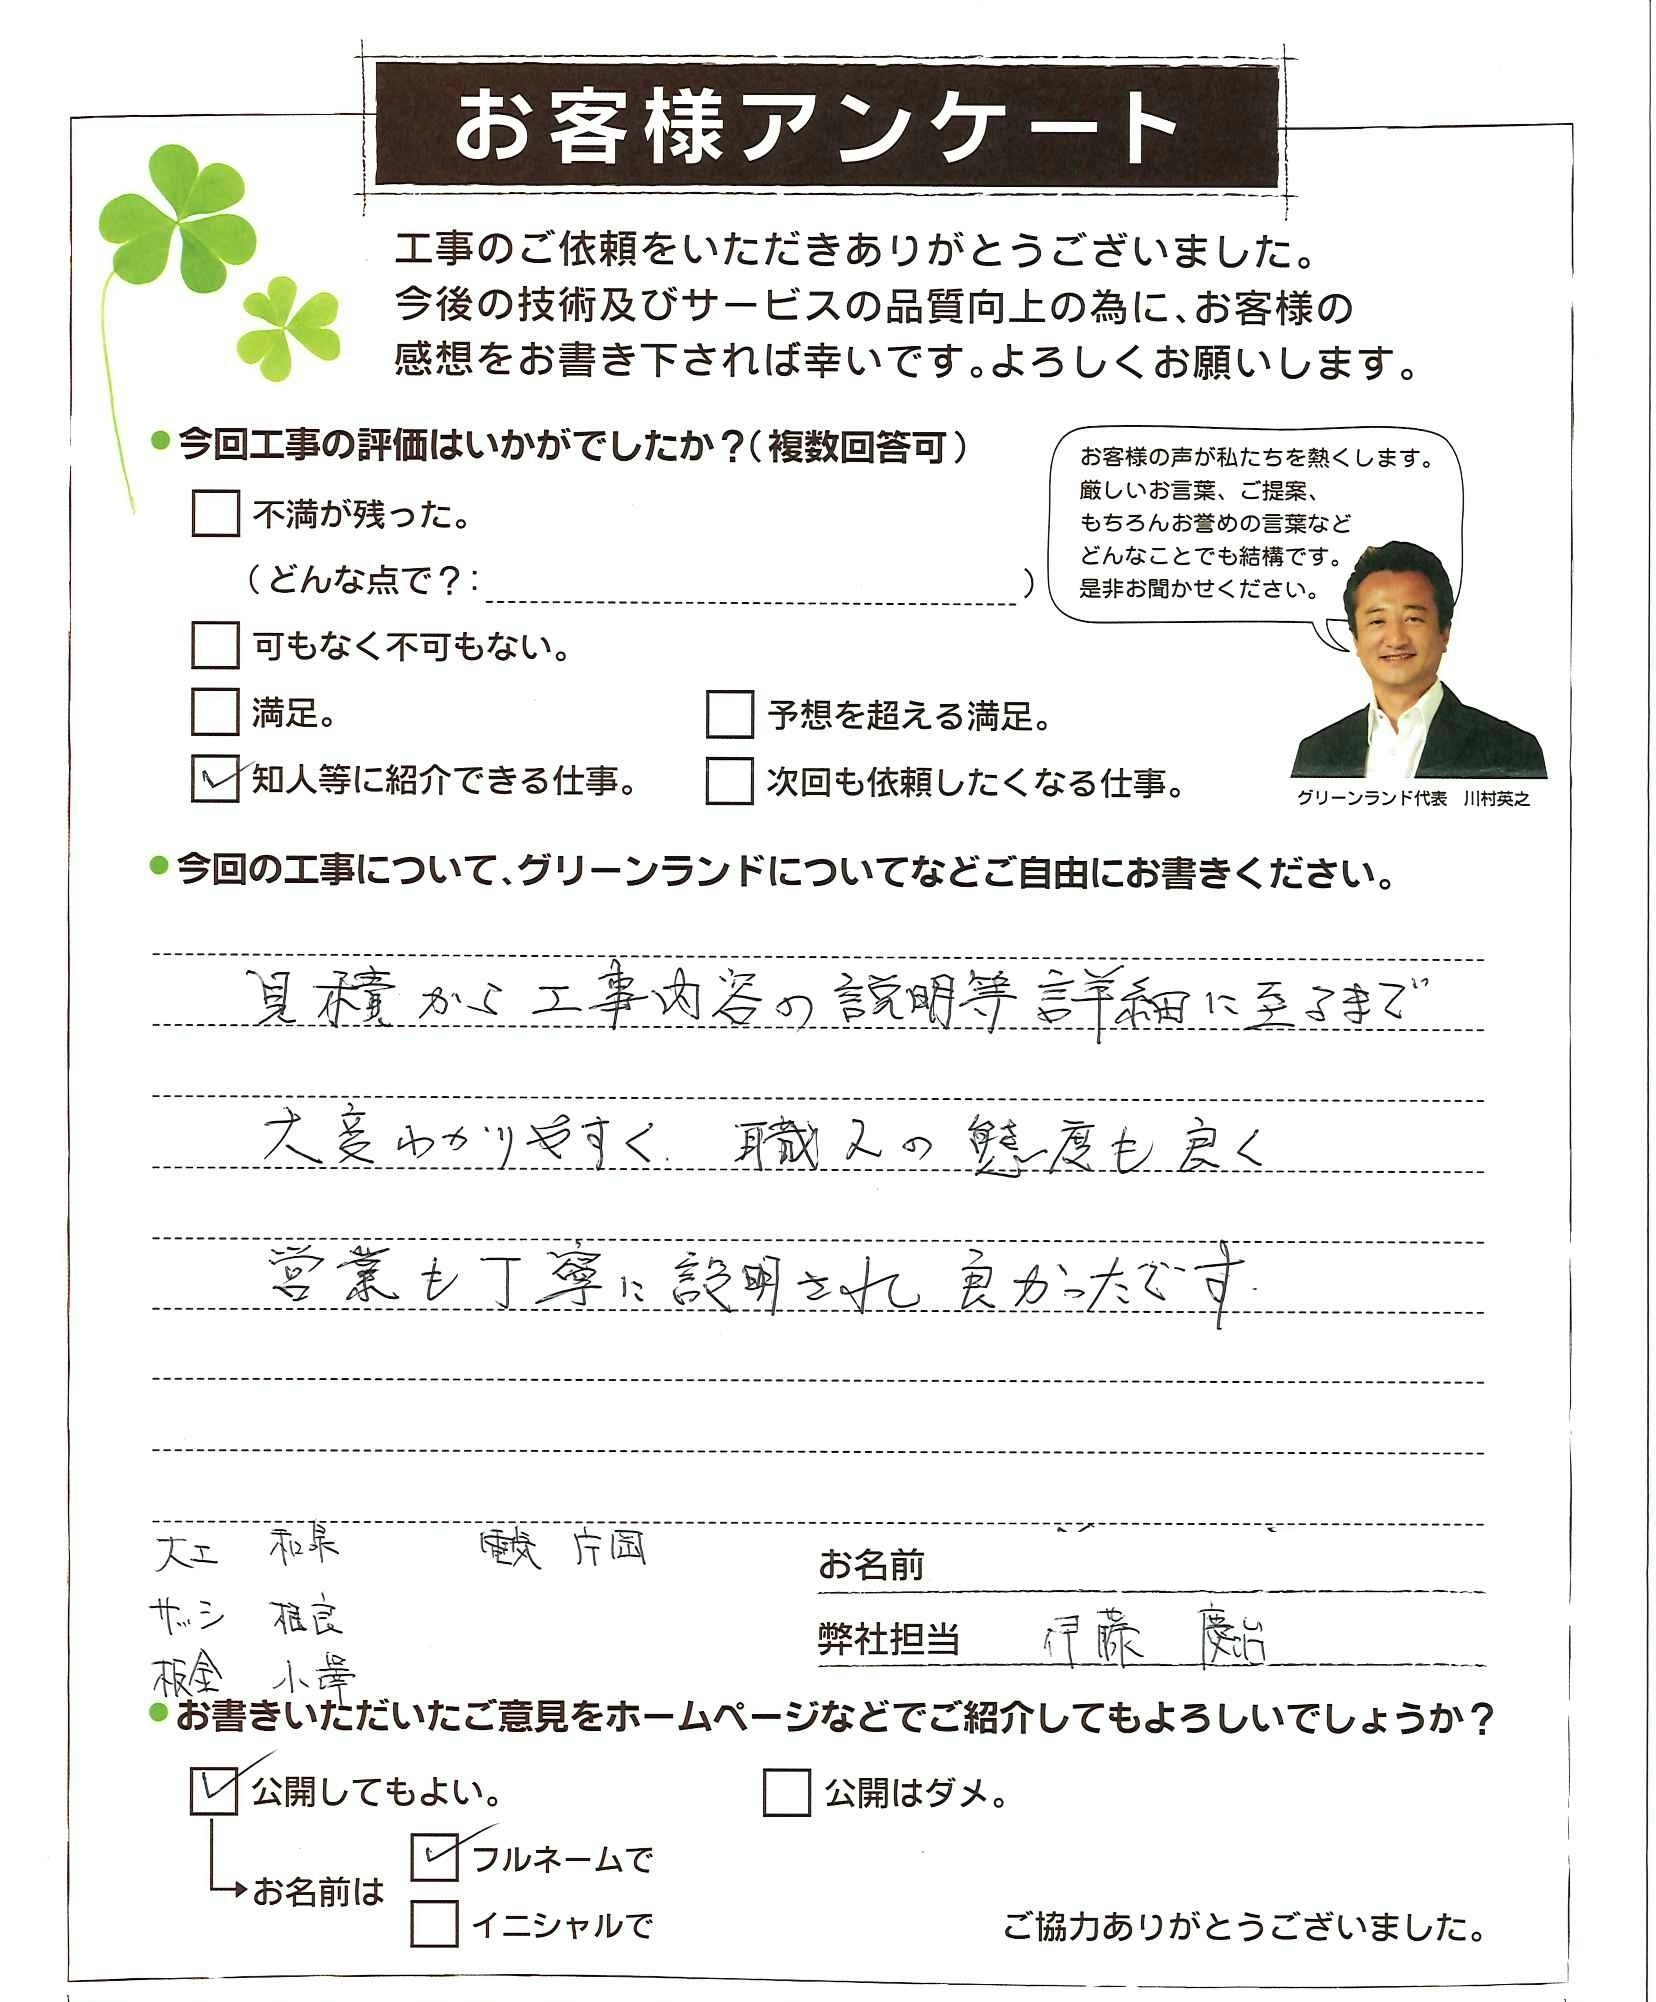 お客様アンケート
工事のご依頼をいただきありがとうございました。
今後の技術及びサービスの品質向上の為に、お客様の
感想をお書き下されば幸いです。よろしくお願いします。
今回工事の評価はいかがでしたか？（複数回答可）
お客様の声が私たちを熱くします。
厳しいお言葉、ご提案、
もちろんお誉めの言葉など
どんなことでも結構です。
是非お聞かせください。
不満が残った。
（どんな点で？：　）
可もなく不可もない。
満足。
予想を超える満足。
知人等に紹介できる仕事。
次回も依頼したくなる仕事。
グリーンランド代表　川村英之
今回の工事について、グリーンランドについてなどご自由にお書きください。
見積から工事内容の説明等詳細に至るまで
大変わかりやすく、職人の態度も良く
営業も丁寧に説明され良かったです。
大工　和泉　電気　片岡
サッシ　相良
板金　小澤
お名前
弊社担当　伊藤　慶治
お書きいただいたご意見をホームページなどでご紹介してもよろしいでしょうか？
公開してもよい。
公開はダメ。
お名前は
フルネームで
イニシャルで
ご協力ありがとうございました。